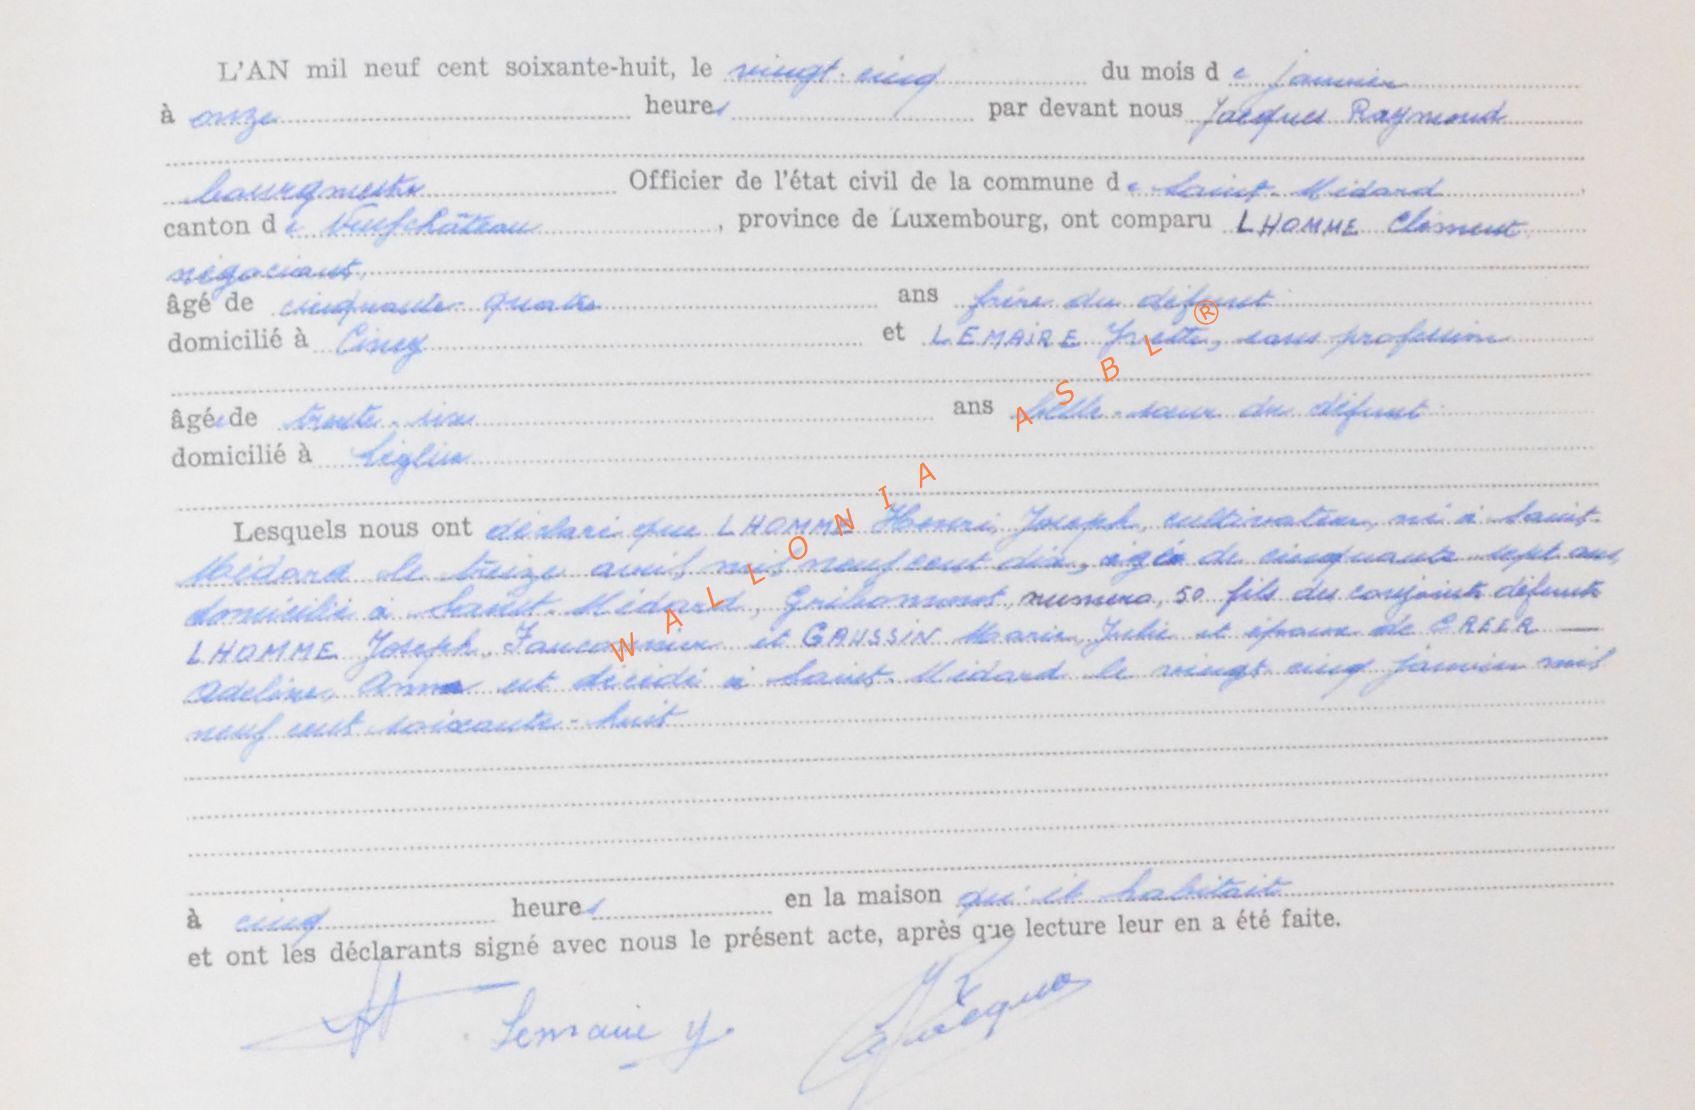 L'AN mil neuf cent soixante-huit, le vingt-cinq du mois de janvier
à onze heures par devant nous Jacques Raymond
bourgmestre Officier de l'état civil de la commune de Saint-Médard,
canton de Neufchâteau, province de Luxembourg, ont comparu LHOMME Clément
négociant,
âgé de cinquante-quatre ans frère du défunt
domicilié à Ciney et LEMAIRE Yvette, sans profession
âgée de trente-six ans belle-sœur du défunt
domicilié à Léglise
Lesquels nous ont déclaré que LHOMME Henri, Joseph, cultivateur, né à Saint-
Médard le treize avril mil neuf cent dix, âgé de cinquante-sept ans,
domicilié à Saint-Médard, Gribomont, numéro, 50 fils des conjoints défunts
LHOMME Joseph, et GAUSSIN Marie, Julie et époux de CREER —
Adeline, Anna est décédé à Saint-Médard le vingt cinq janvier mil
neuf cent soixante-huit
à cinq heures en la maison qu'il habitait
et ont les déclarants signé avec nous le présent acte, après que lecture leur en a été faite.
Lemaire y. Jacques
WALLONIA ASBL ®